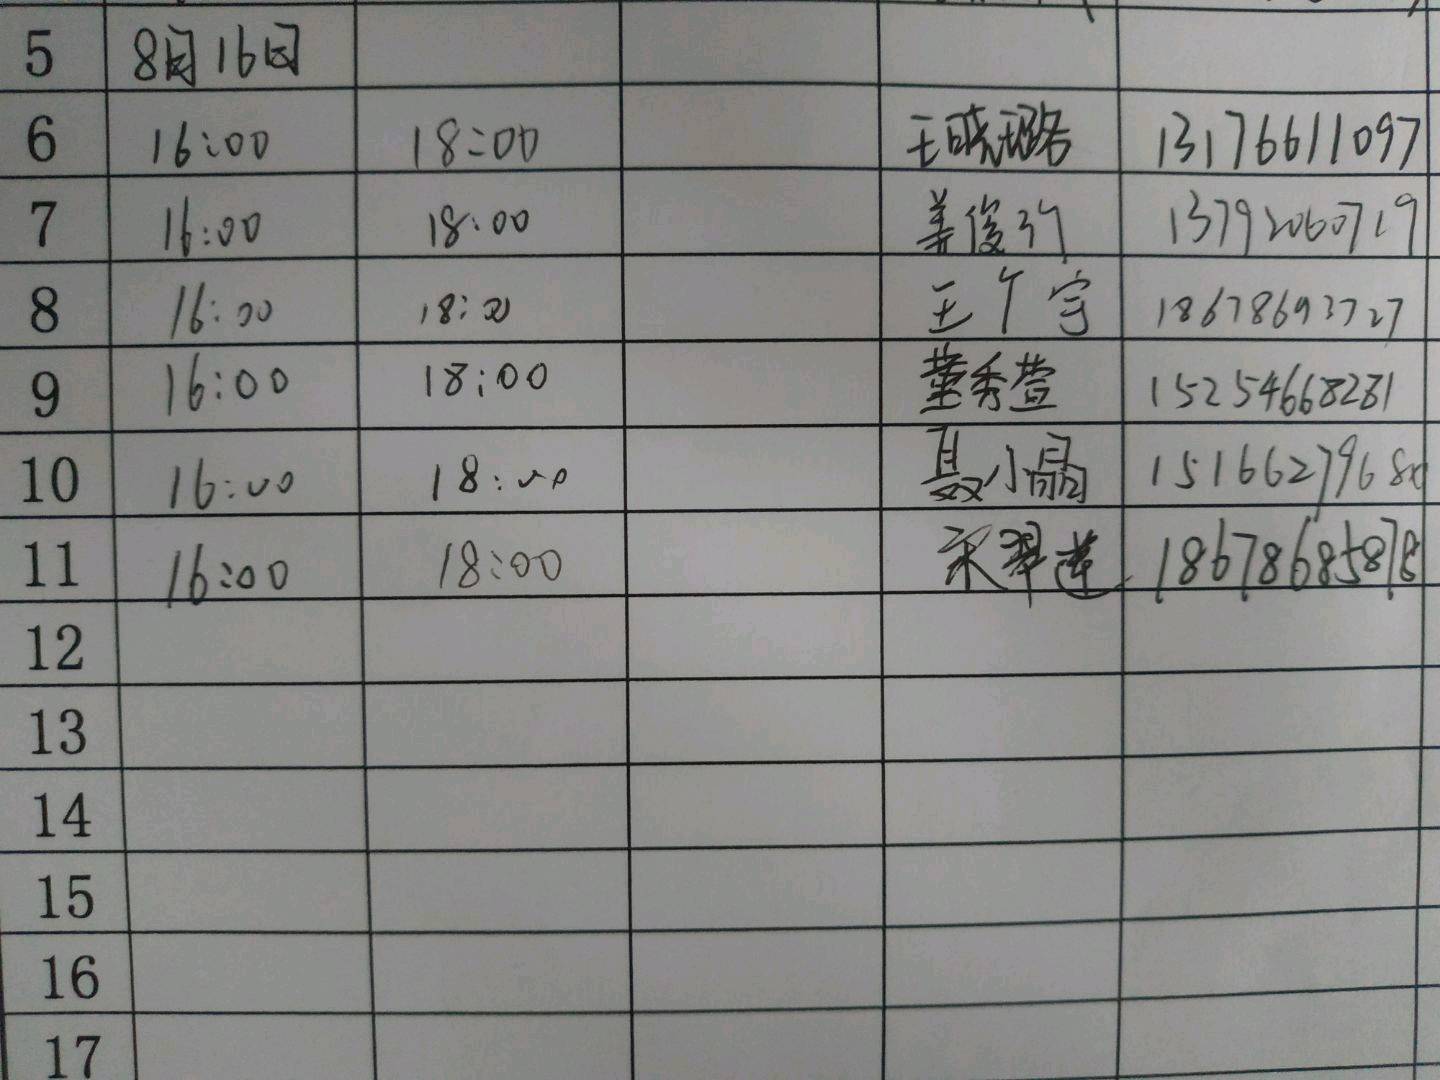 5 8月16日
6 16:00 18:00 王晓璐 13176611097
7 16:00 18:00 姜俊汐 13792060719
8 16:00 18:00 王个宇 18678693727
9 16:00 18:00 董秀萱 15254668281
10 16:00 18:00 聂小晶 1516627968
11 16:00 18:00 宋翠莲 18678685878
12
13
14
15
16
17